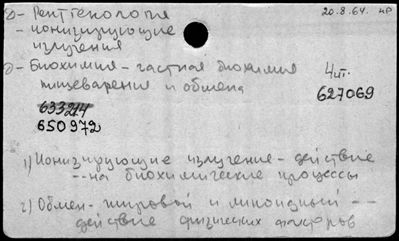 2) - Рентгенология
20.8.64. НР
- ионизирующие
излучения
2) - Биохимия - частная биохимия
пищеварения и обмена
4 шт.
627069
633214
650972
1) Ионизирующие излучение - действие
-- на биохимические процессы
2) Обмен - жировой и липоидный --
действие физических факторов